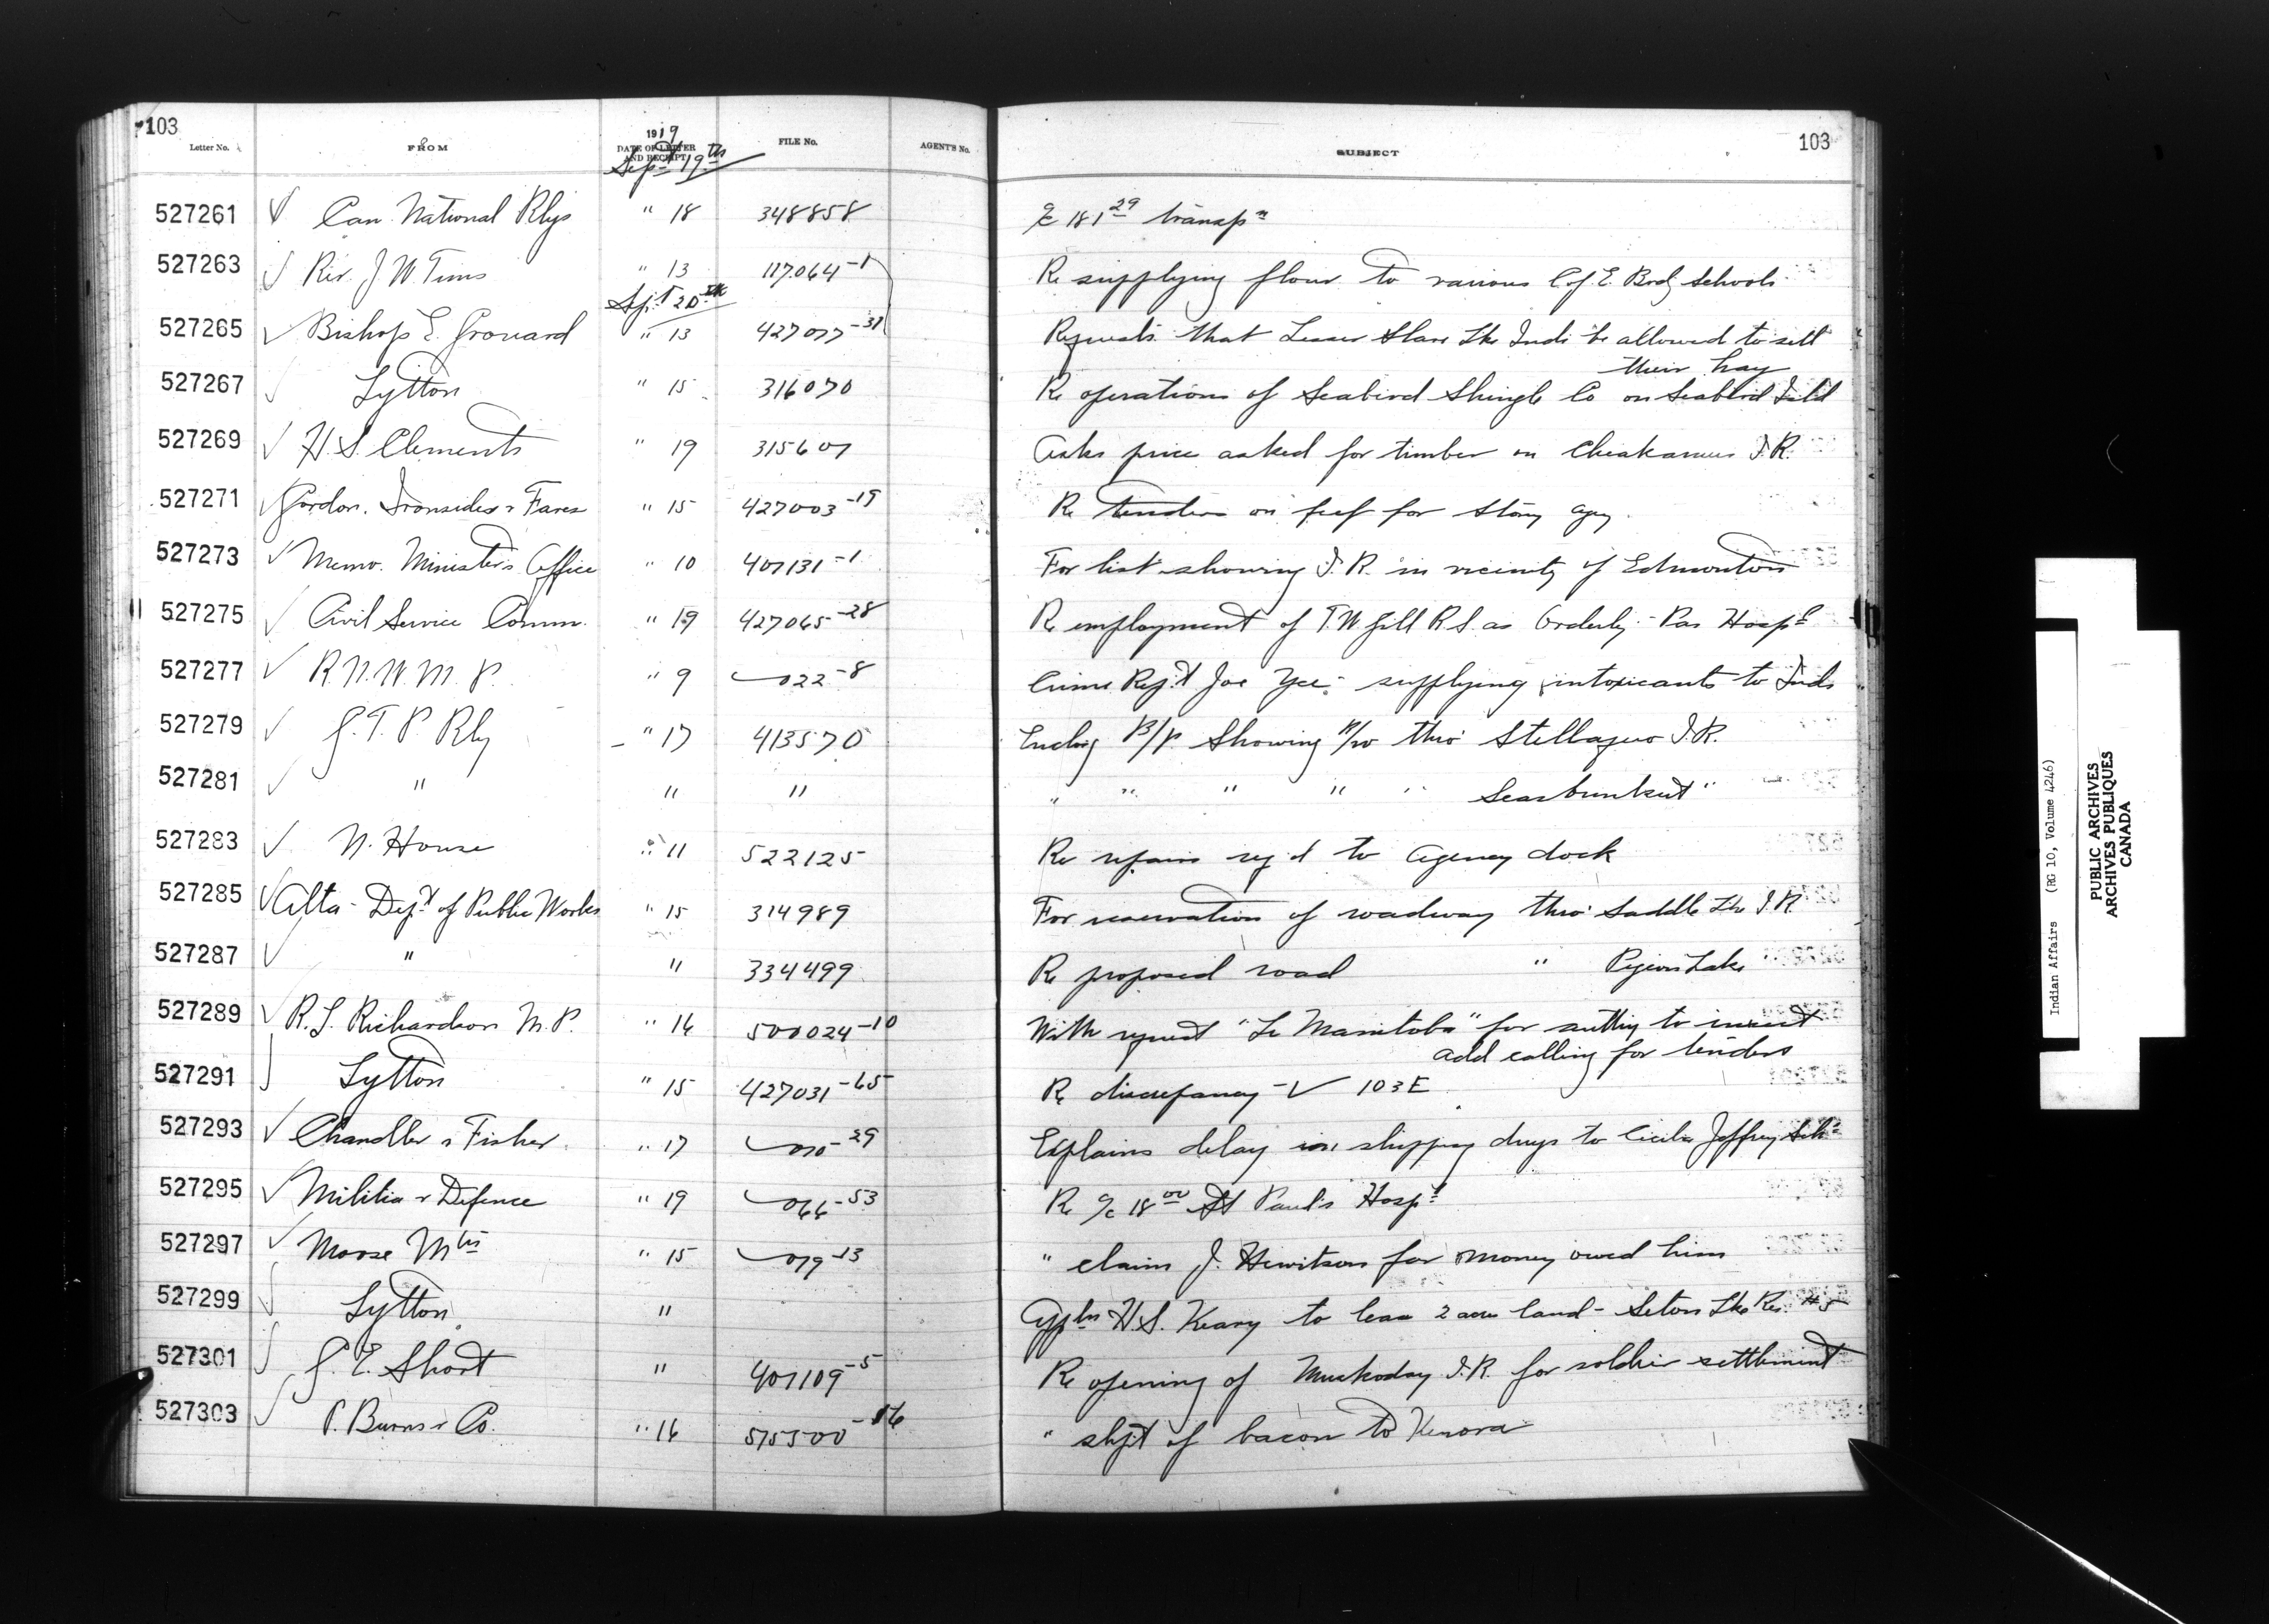 103
103
Letter No.
FROM
1919
DATE OF LETTER AND RECEIPT
FILE No.
AGENT'S No.
SUBJECT
Sept 19th
527261 Can. National Rlys " 18 348858 a/c 181 29 transpn
527263 Rev. J W. Tims " 13 117064-1 Re supplying flour to various C of E. Brdg Schools
Sept 20th
527265 Bishop E. Grouard " 13 427077-31 Requests that Lesser Slave Lke Inds be allowed to sell
their hay
527267 Lytton " 15 316070 Re operations of Seabird Shingle Co on Seabird Isld
527269 H. S. Clements " 19 315607 Asks price asked for timber on Cheakamus I.R.
527271 Gordon. Ironsides & Fares " 15 427003-19 Re tenders on beef for Stony agcy
527273 Memo. Minister's Office " 10 407131-1 For list showing I.R. in vicinity of Edmonton
527275 Civil Service Comm. " 19 427065-28 Re employment of T. W. Gill R.S. as Orderly - Pas Hospl
527277 R. N. W. M. P. " 9 022-8 Crime Rept Joe Yee: supplying intoxicants to Inds
527279 G. T. P. Rly " 17 413570 Enclsg B/P Showing R/W thro' Stellaquo I.R.
527281 " " " " " " " " Seasbunkut "
527283 N. House " 11 522125 Re repairs reqd to Agency dock
527285 Alta - Dept of Public Works " 15 314989 For reservation of roadway thro' Saddle Lke I.R.
527287 " " 334499 Re proposed road " Pigeon Lake "
527289 R. L. Richardson M. P. " 16 500024-10 With request "Le Manitoba" for authy to insert
add calling for tenders
527291 Lytton " 15 427031-65 Re discrepancy - V 103E
527293 Chandler & Fisher. " 17 070-29 Explains delay in shipping drugs to Cecilia Jeffrey Schl
527295 Militia & Defence " 19 066-53 Re a/c 18 00 St Paul's Hospl
527297 Moose Mtn " 15 079-13 " claim J. Hewitson for money owed him
527299 Lytton " Appln H. S. Keary to lease 2 acres land - Seton Lke Res #5
527301 G. E. Short " 407109-5 Re opening of Muskoday I.R. for soldier settlement
527303 P. Burns & Co. " 16 515500-16 " shipt of bacon to Kenora
Indian Affairs (RG 10, Volume 4246)
PUBLIC ARCHIVES
ARCHIVES PUBLIQUES
CANADA